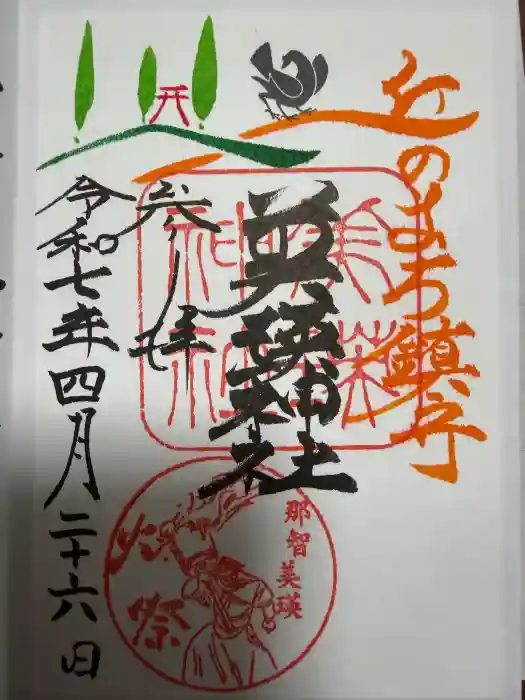 丘のまち鎮守
美瑛神社
美瑛神社
奉拝
令和七年四月二十六日
那智美瑛
火祭